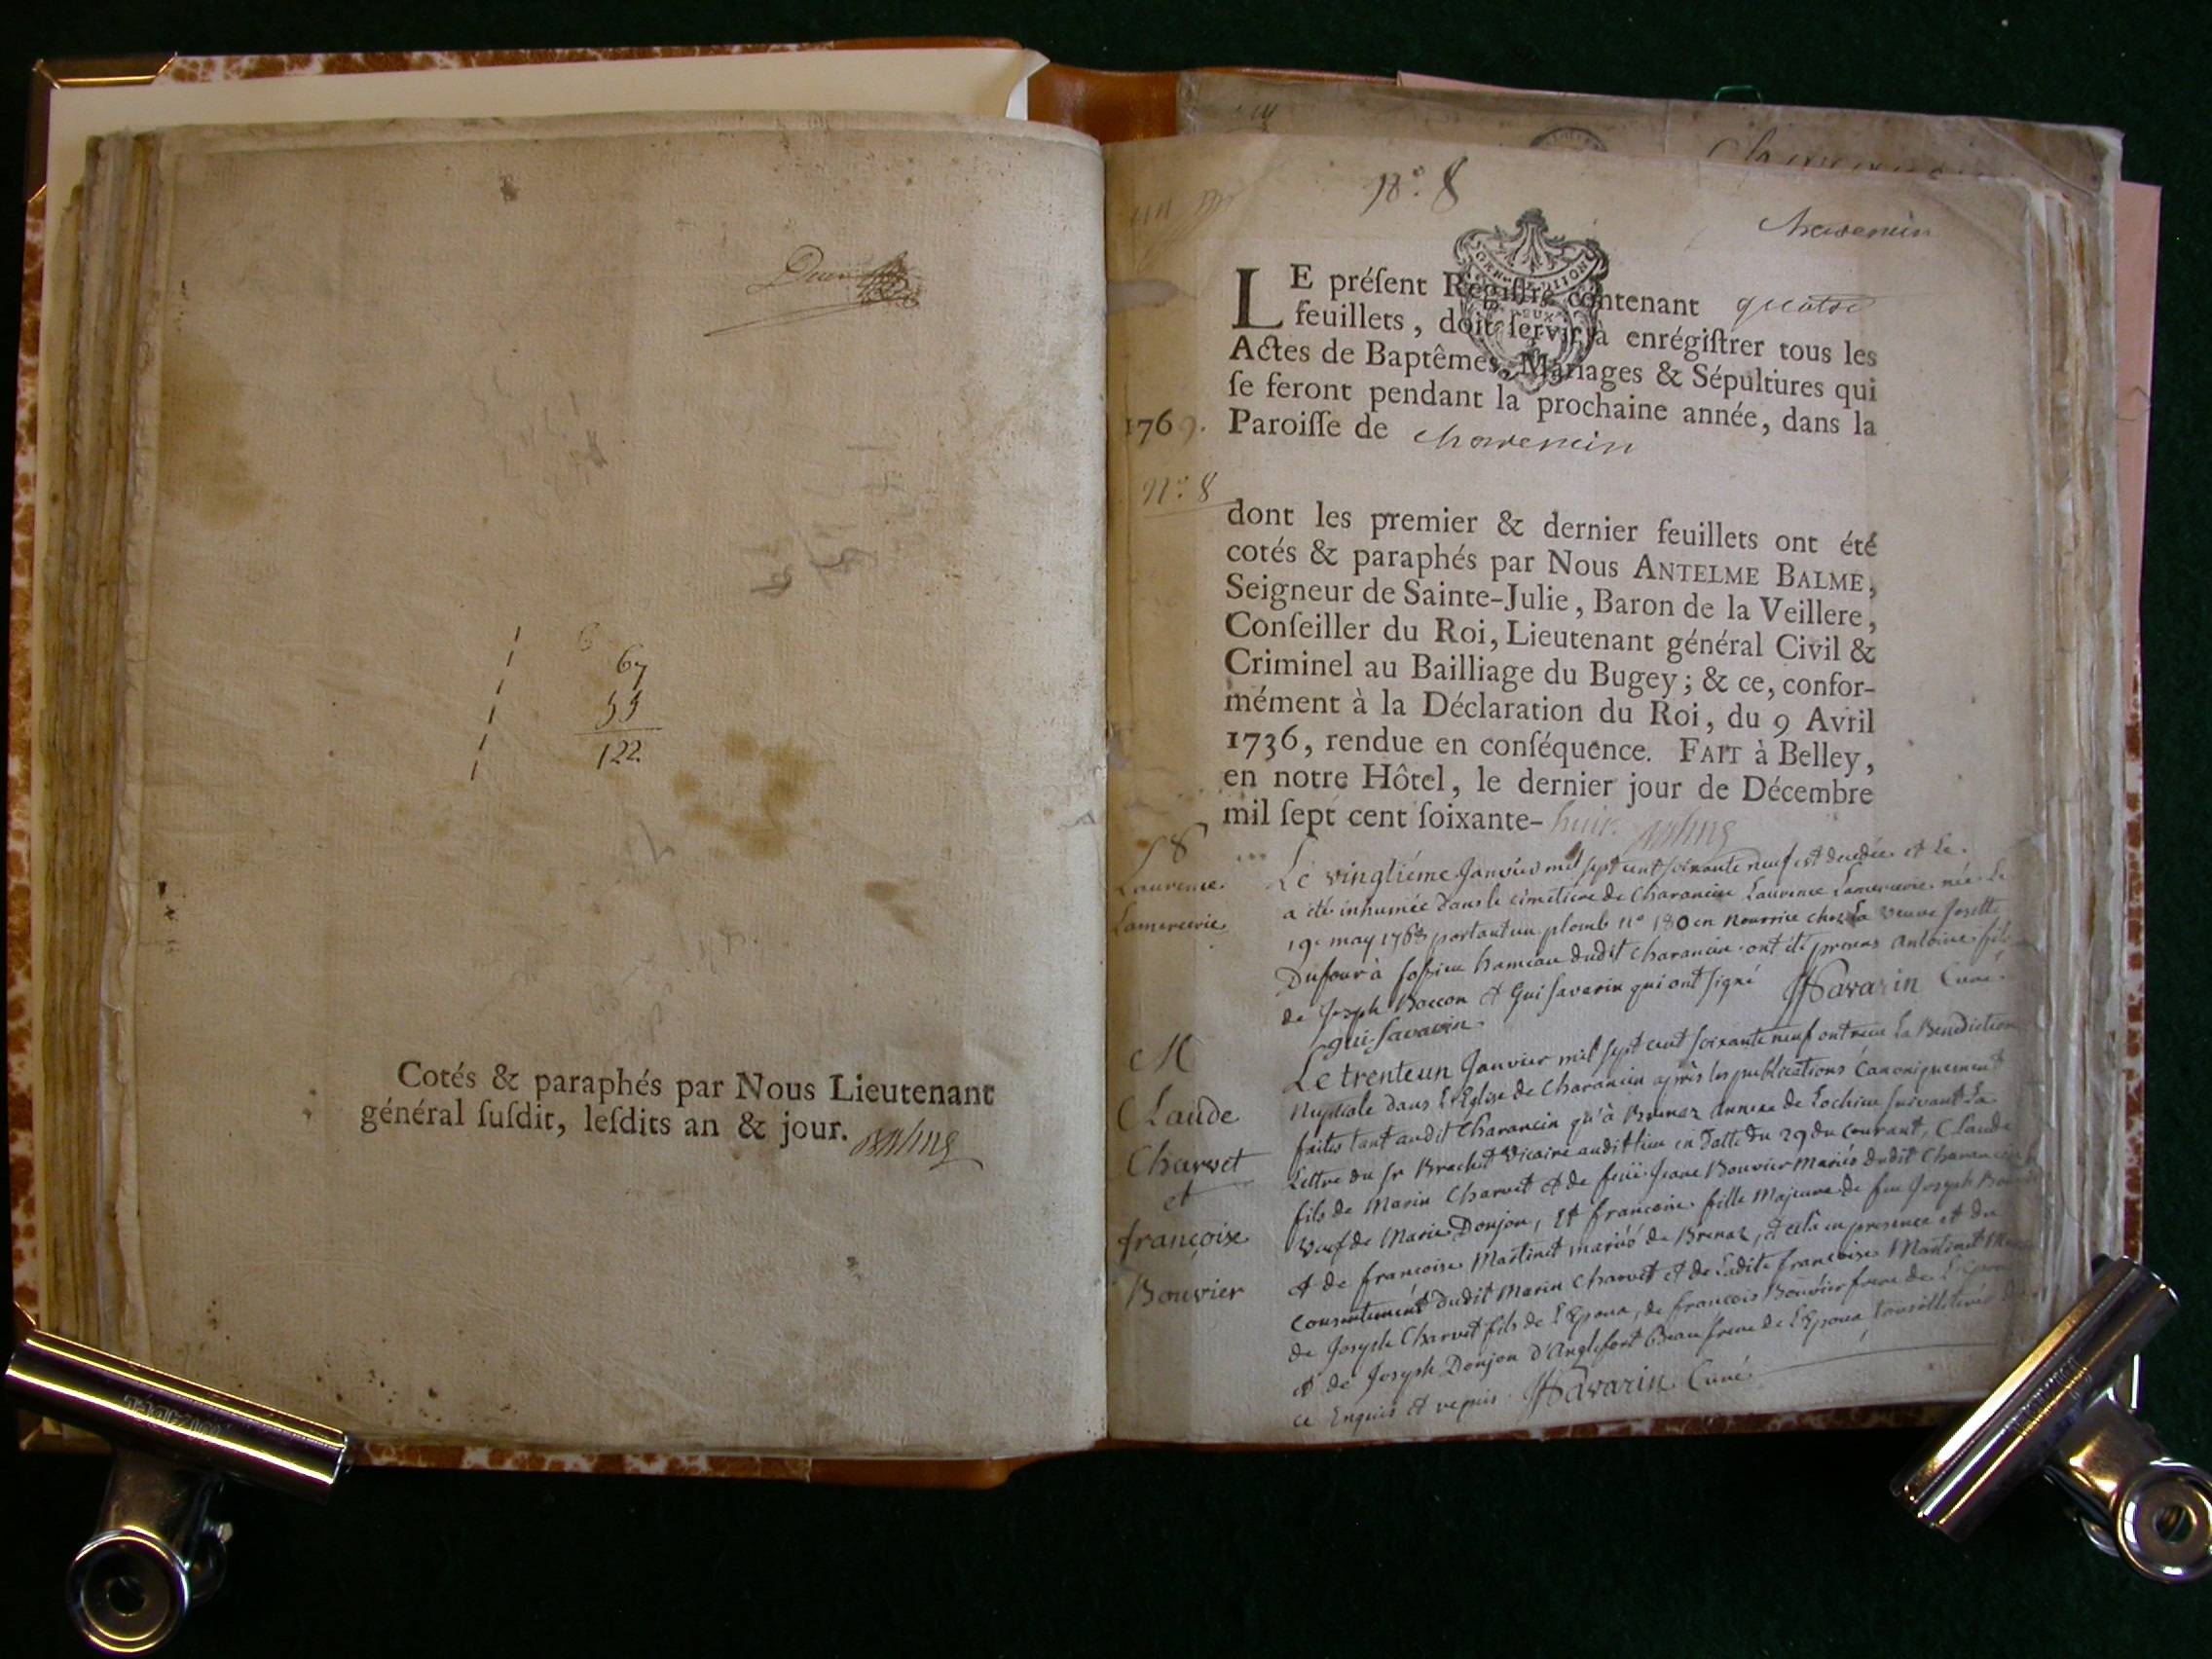 67
55
122
Cotés & paraphés par Nous Lieutenant
général ſuſdit, leſdits an & jour. Balme
N.º 8
Charencin
LE préſent Regiſtre contenant quatre
feuillets, doit ſervir à enrégiſtrer tous les
Actes de Baptêmes, Mariages & Sépultures qui
ſe feront pendant la prochaine année, dans la
1769. Paroiſſe de charencin
N.º 8
dont les premier & dernier feuillets ont été
cotés & paraphés par Nous ANTELME BALME,
Seigneur de Sainte-Julie, Baron de la Veillere,
Conſeiller du Roi, Lieutenant général Civil &
Criminel au Bailliage du Bugey; & ce, confor-
mément à la Déclaration du Roi, du 9 Avril
1736, rendue en conſéquence. FAIT à Belley,
en notre Hôtel, le dernier jour de Décembre
mil ſept cent ſoixante-huit. Balme
S
Laurence
Lamercerie
Le vingtiéme Janvier mil sept cent soixante neuf est decedée et le
a été inhumée dans le cimetiere de Charancin Laurence Lamercerie née le
19e may 1768 portant un plomb n° 180 en nourrice chez La veuve Josette
Dufour à fossieu hameau dudit Charancin ont été presens antoine fils
de Joseph Baccon et Gui Savarin qui ont signé Savarin Curé
gui Savarin
M
Claude
Charvet
et
françoise
Bouvier
Le trenteun Janvier mil sept cent soixante neuf ont recu la Benediction
Nuptiale dans l'Eglise de Charancin après les publications Canoniquement
faites tant audit Charancin qu'à Brenaz annexe de Lochieu suivant la
Lettre du sr Brachet Vicaire audit lieu en datte du 29 du courant, Claude
fils de Marin Charvet et de feüe Jeane Bouvier mariés dudit Charancin
veuf de Marie Donjon, Et francoise fille Majeure de feu Joseph
et de francoise Martinet mariés de Brenaz, et cela en presence et du
consentement dudit Marin Charvet et de Ladite francoise Martinet
de Joseph Charvet fils de l'Epoux, de francois Bouvier frere de l'Epouse
et de Joseph Donjon d'Anglefort Beaufrere de l'Epoux tous illiterés de
ce Enquis et requis Savarin Curé